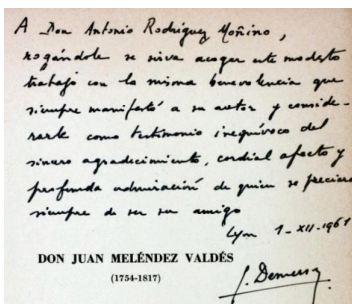 A Don Antonio Rodríguez Moñino,
rogándole se sirva acoger este modesto
trabajo con la misma benevolencia que
siempre manifestó a su autor y conside-
rarle como testimonio inequívoco del
sincero agradecimiento, cordial afecto y
profunda admiración de quien se preciará
siempre de ser su amigo
Lyon 1-XII-1961
DON JUAN MELÉNDEZ VALDÉS
(1754-1817)
G. Demerson